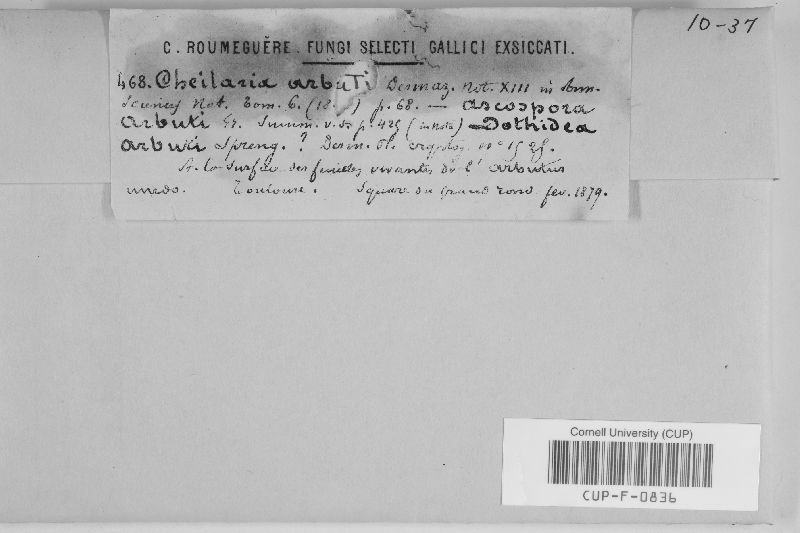 10-37
C. ROUMEGUÈRE. FUNGI SELECTI GALLICI EXSICCATI.
468. Cheilaria arbuti Desmaz. Not. XIII in Ann.
Sciences Nat. Tom. 6. (18 ) p. 68. — Ascospora
Arbuti Fr. Summ. v. sc p. 425 (in nota) — Dothidea
arbuti Spreng. ? Desm. Pl. cryptog. n°
A la surface des feuilles vivantes de l' arbutus
unedo. Toulouse. Square du Grand rond. fev. 1879.
Cornell University (CUP)
CUP-F-0836